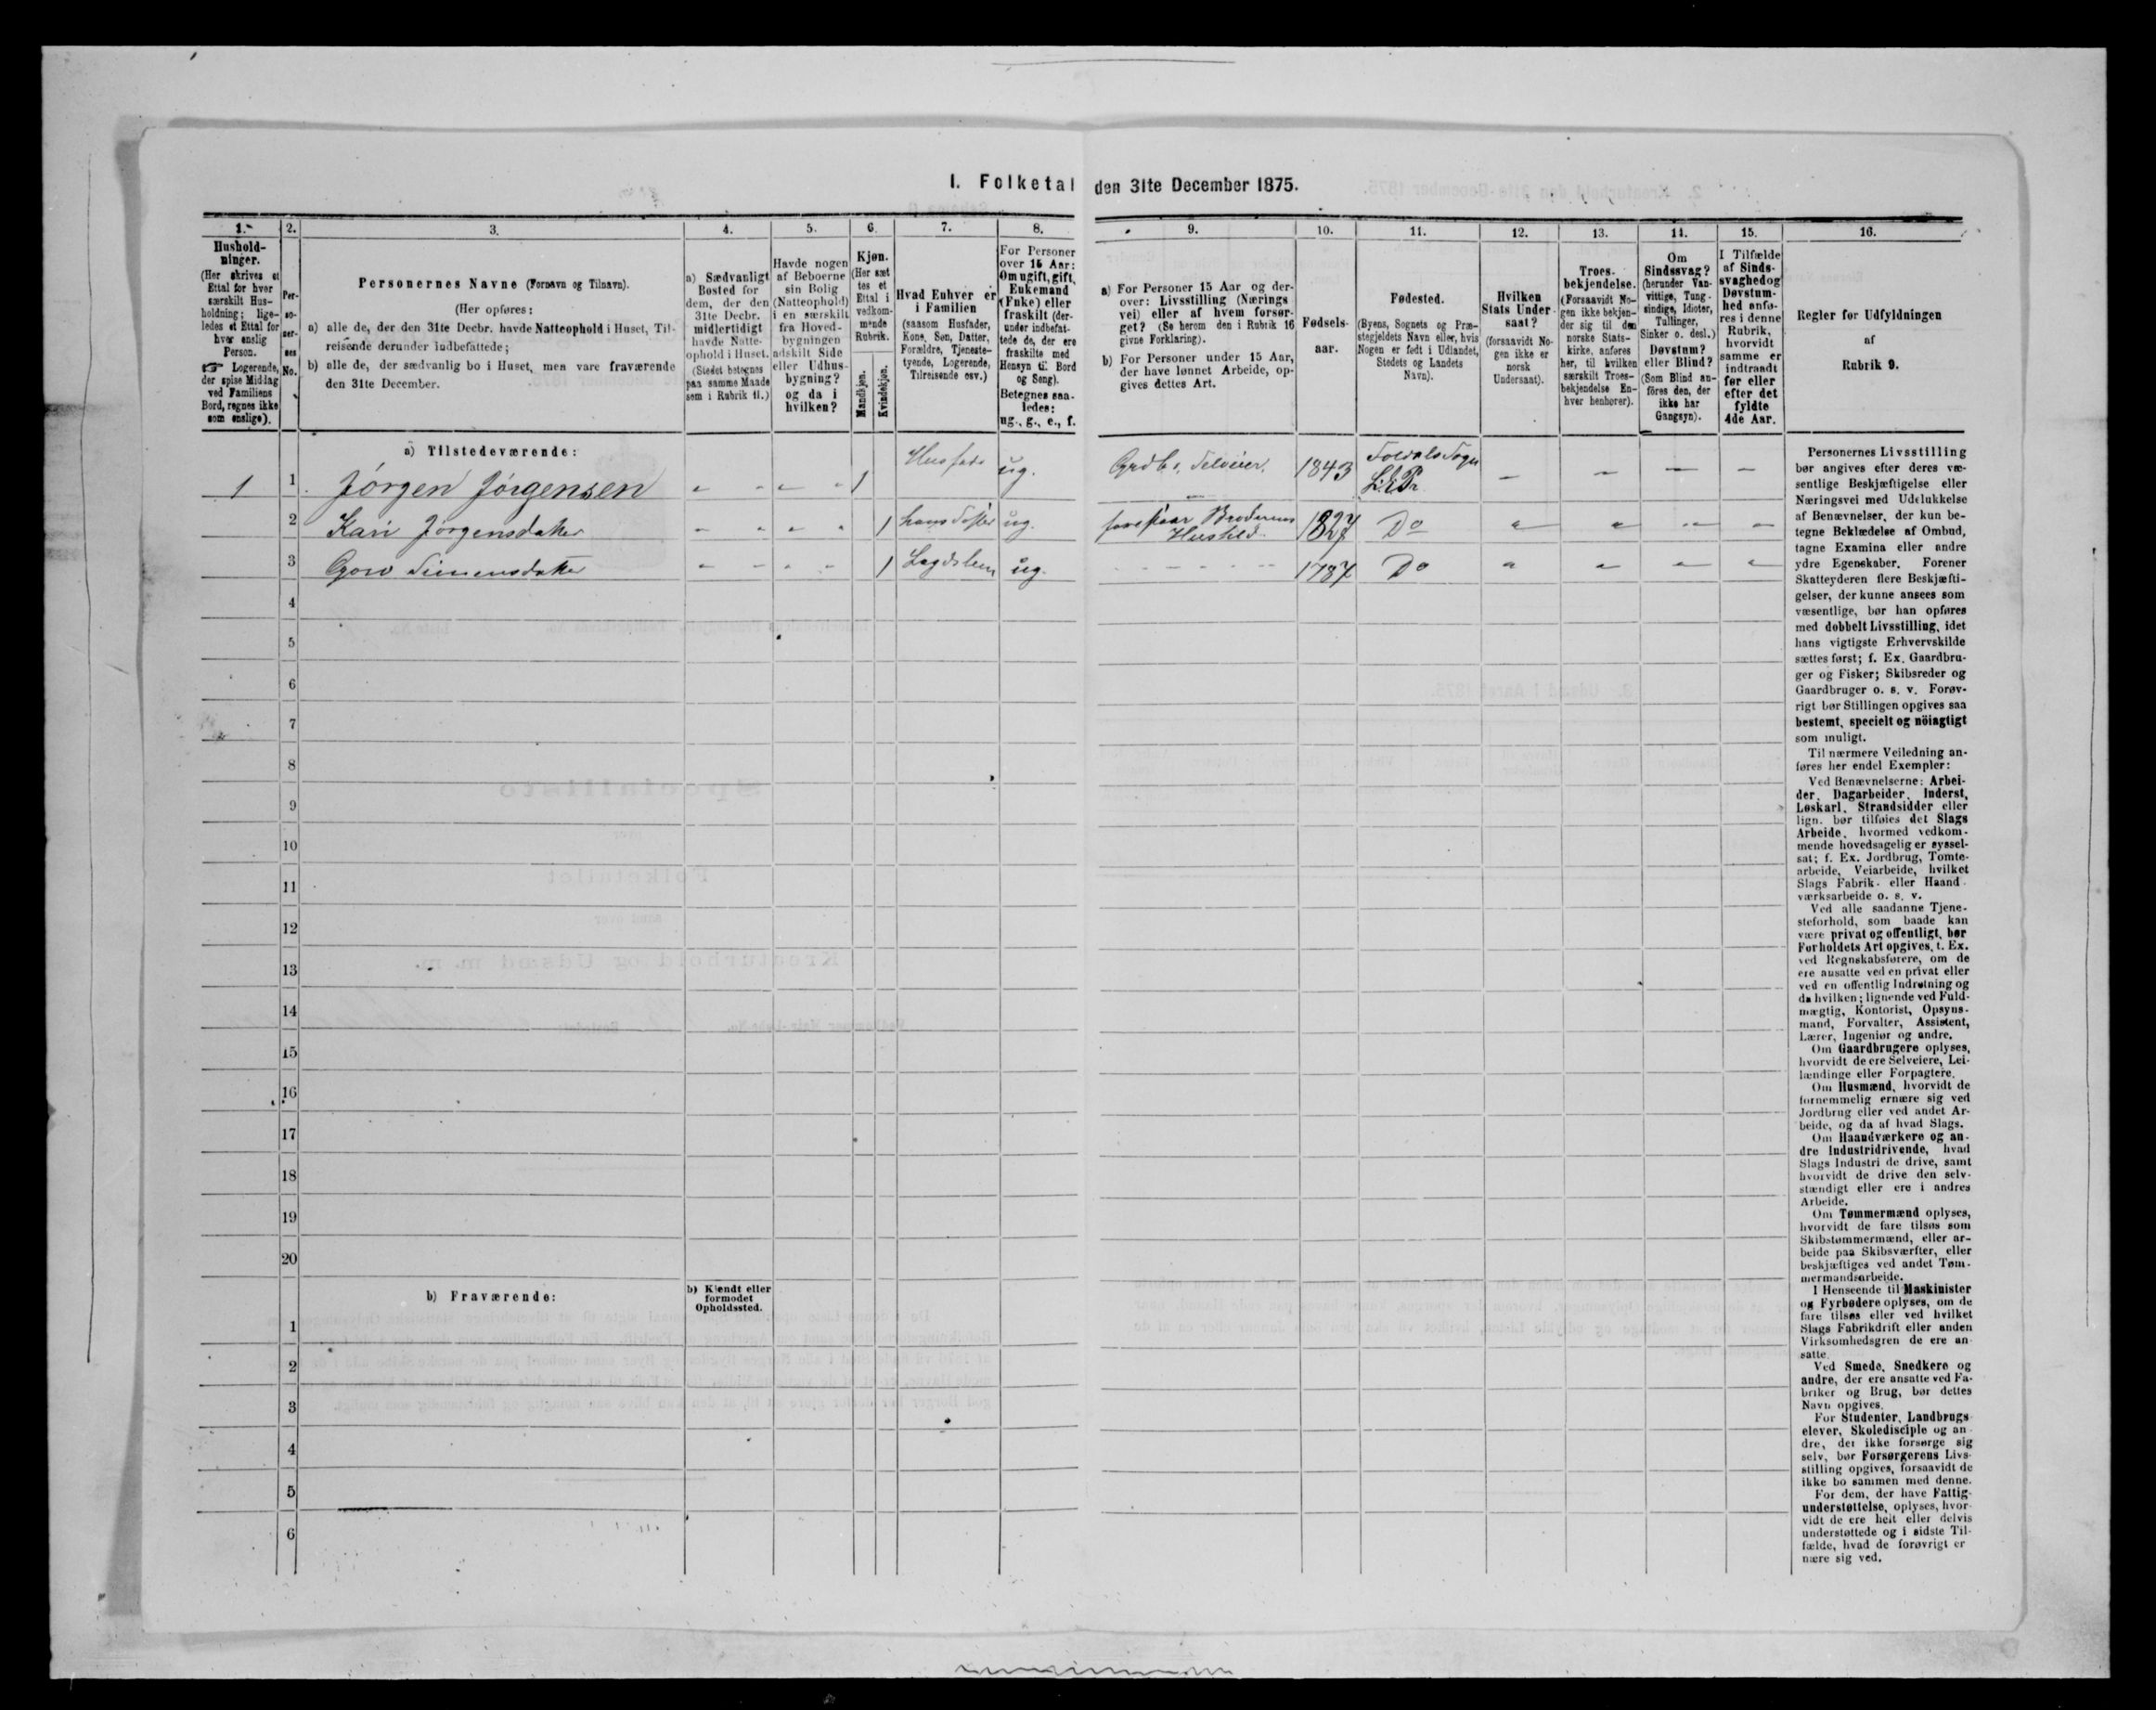 I. Folketal den 31te December 1875.
1.
Hushold-
ninger.
(Her skrives et
Ettal for hver
særskilt Hus-
holdning; lige-
ledes et Ettal for
hver enslig
Person.
☞ Logerende,
der spise Middag
ved Familiens
Bord, regnes ikke
som enslige).
2.
Per-
so-
ner-
nes
No.
3.
Personernes Navne (Fornavn og Tilnavn).
(Her opføres:
a) alle de, der den 31te Decbr. havde Natteophold i Huset, Til-
reisende derunder indbefattede;
b) alle de, der sædvanlig bo i Huset, men vare fraværende
den 31te December.
4.
a) Sædvanligt
Bosted for
dem, der den
31te Decbr.
midlertidigt
havde Natte-
ophold i Huset.
(Stedet betegnes
paa samme Maade
som i Rubrik 11.)
5.
Havde nogen
af Beboerne
sin Bolig
(Natteophold)
i en særskilt
fra Hoved-
bygningen
adskilt Side
eller Udhus-
bygning?
og da i
hvilken?
6.
Kjøn.
(Her sæt
tes et
Ettal i
vedkom-
mende
Rubrik.
Mandkjøn.
Kvindekjøn.
7.
Hvad Enhver er
i Familien
(saasom Husfader,
Kone, Søn, Datter,
Forældre, Tjeneste-
tyende, Logerende,
Tilreisende osv.)
8.
For Personer
over 15 Aar:
Om ugift, gift,
Enkemand
(Enke) eller
fraskilt (der-
under indbefat-
tede de, der ere
fraskilte med
Hensyn til Bord
og Seng).
Betegnes saa-
ledes:
ug., g., e., f.
9.
a) For Personer 15 Aar og der-
over: Livsstilling (Nærings
vei) eller af hvem forsør-
get? (Se herom den i Rubrik 16
givne Forklaring).
b) For Personer under 15 Aar,
der have lønnet Arbeide, op-
gives dettes Art.
10.
Fødsels-
aar.
11.
Fødested.
(Byens, Sognets og Præ-
stegjeldets Navn eller, hvis
Nogen er født i Udlandet,
Stedets og Landets
Navn).
12.
Hvilken
Stats Under-
saat?
(forsaavidt No-
gen ikke er
norsk
Undersaat).
13.
Troes-
bekjendelse.
(Forsaavidt No-
gen ikke bekjen-
der sig til den
norske Stats-
kirke, anføres
her, til hvilken
særskilt Troes-
bekjendelse En-
hver henhører).
14.
Om
Sindssvag?
(herunder Van-
vittige, Tung-
sindige, Idioter,
Tullinger,
Sinker o. desl.)
Døvstum?
eller Blind?
(Som Blind an-
føres den, der
ikke har
Gangsyn).
15.
I Tilfælde
af Sinds-
svaghed og
Døvstum-
hed anfø-
res i denne
Rubrik,
hvorvidt
samme er
indtraadt
før eller
efter det
fyldte
4de Aar.
16.
Regler for Udfyldningen
af
Rubrik 9.
a) Tilstedeværende:
1 1 Jørgen Jørgensen 1 Husfader ug. Grdbr. Selveier. 1843 Soldals Sogn
2 Kari Jørgensdatter 1 hans Søster ug. forestaar Broderens 1827 Do
Hushld.
3 Goro Simensdatter 1 Lægdslem ug. 1787 Do
4
5
6
7
8
9
10
11
12
13
14
15
16
17
18
19
20
b) Fraværende:
b) Kjendt eller
formodet
Opholdssted.
1
2
3
4
5
6
Personernes Livsstilling
bør angives efter deres væ-
sentlige Beskjæftigelse eller
Næringsvei med Udelukkelse
af Benævnelser, der kun be-
tegne Beklædelse af Ombud,
tagne Examina eller andre
ydre Egenskaber. Forener
Skatteyderen flere Beskjæfti-
gelser, der kunne ansees som
væsentlige, bør han opføres
med dobbelt Livsstilling, idet
hans vigtigste Erhvervskilde
sættes først; f. Ex. Gaardbru-
ger og Fisker; Skibsreder og
Gaardbruger o. s. v. Forøv-
rigt bør Stillingen opgives saa
bestemt, specielt og nöiagtigt
som muligt.
Til nærmere Veiledning an-
føres her endel Exempler:
Ved Benævnelserne: Arbei-
der, Dagarbeider, Inderst,
Løskarl, Strandsidder eller
lign. bør tilføies det Slags
Arbeide, hvormed vedkom-
mende hovedsagelig er syssel-
sat; f. Ex. Jordbrug, Tomte-
arbeide, Veiarbeide, hvilket
Slags Fabrik- eller Haand-
værksarbeide o. s. v.
Ved alle saadanne Tjene-
steforhold, som baade kan
være privat og offentligt, bør
Forholdets Art opgives, t. Ex.
ved Regnskabsførere, om de
ere ansatte ved en privat eller
ved en offentlig Indretning og
da hvilken; lignende ved Fuld-
mægtig, Kontorist, Opsyns-
mand, Forvalter, Assistent,
Lærer, Ingeniør og andre.
Om Gaardbrugere oplyses,
hvorvidt de ere Selveiere, Lei-
lændinge eller Forpagtere.
Om Husmænd, hvorvidt de
fornemmelig ernære sig ved
Jordbrug eller ved andet Ar-
beide, og da af hvad Slags.
Om Haandværkere og an-
dre Industridrivende, hvad
Slags Industri de drive, samt
hvorvidt de drive den selv-
stændigt eller ere i andres
Arbeide.
Om Tømmermænd oplyses,
hvorvidt de fare tilsøs som
Skibstømmermænd, eller ar-
beide paa Skibsværfter, eller
beskjæftiges ved andet Tøm-
mermandsarbeide.
I Henseende til Maskinister
og Fyrbødere oplyses, om de
fare tilsøs eller ved hvilket
Slags Fabrikdrift eller anden
Virksomhedsgren de ere an-
satte.
Ved Smede, Snedkere og
andre, der ere ansatte ved Fa-
briker og Brug, bør dettes
Navn opgives.
For Studenter, Landbrugs-
elever, Skoledisciple og an-
dre, der ikke forsørge sig
selv, bør Forsørgerens Livs-
stilling opgives, forsaavidt de
ikke bo sammen med denne.
For dem, der have Fattig-
understøttelse, oplyses, hvor-
vidt de ere helt eller delvis
understøttede og i sidste Til-
fælde, hvad de forøvrigt er
nære sig ved.